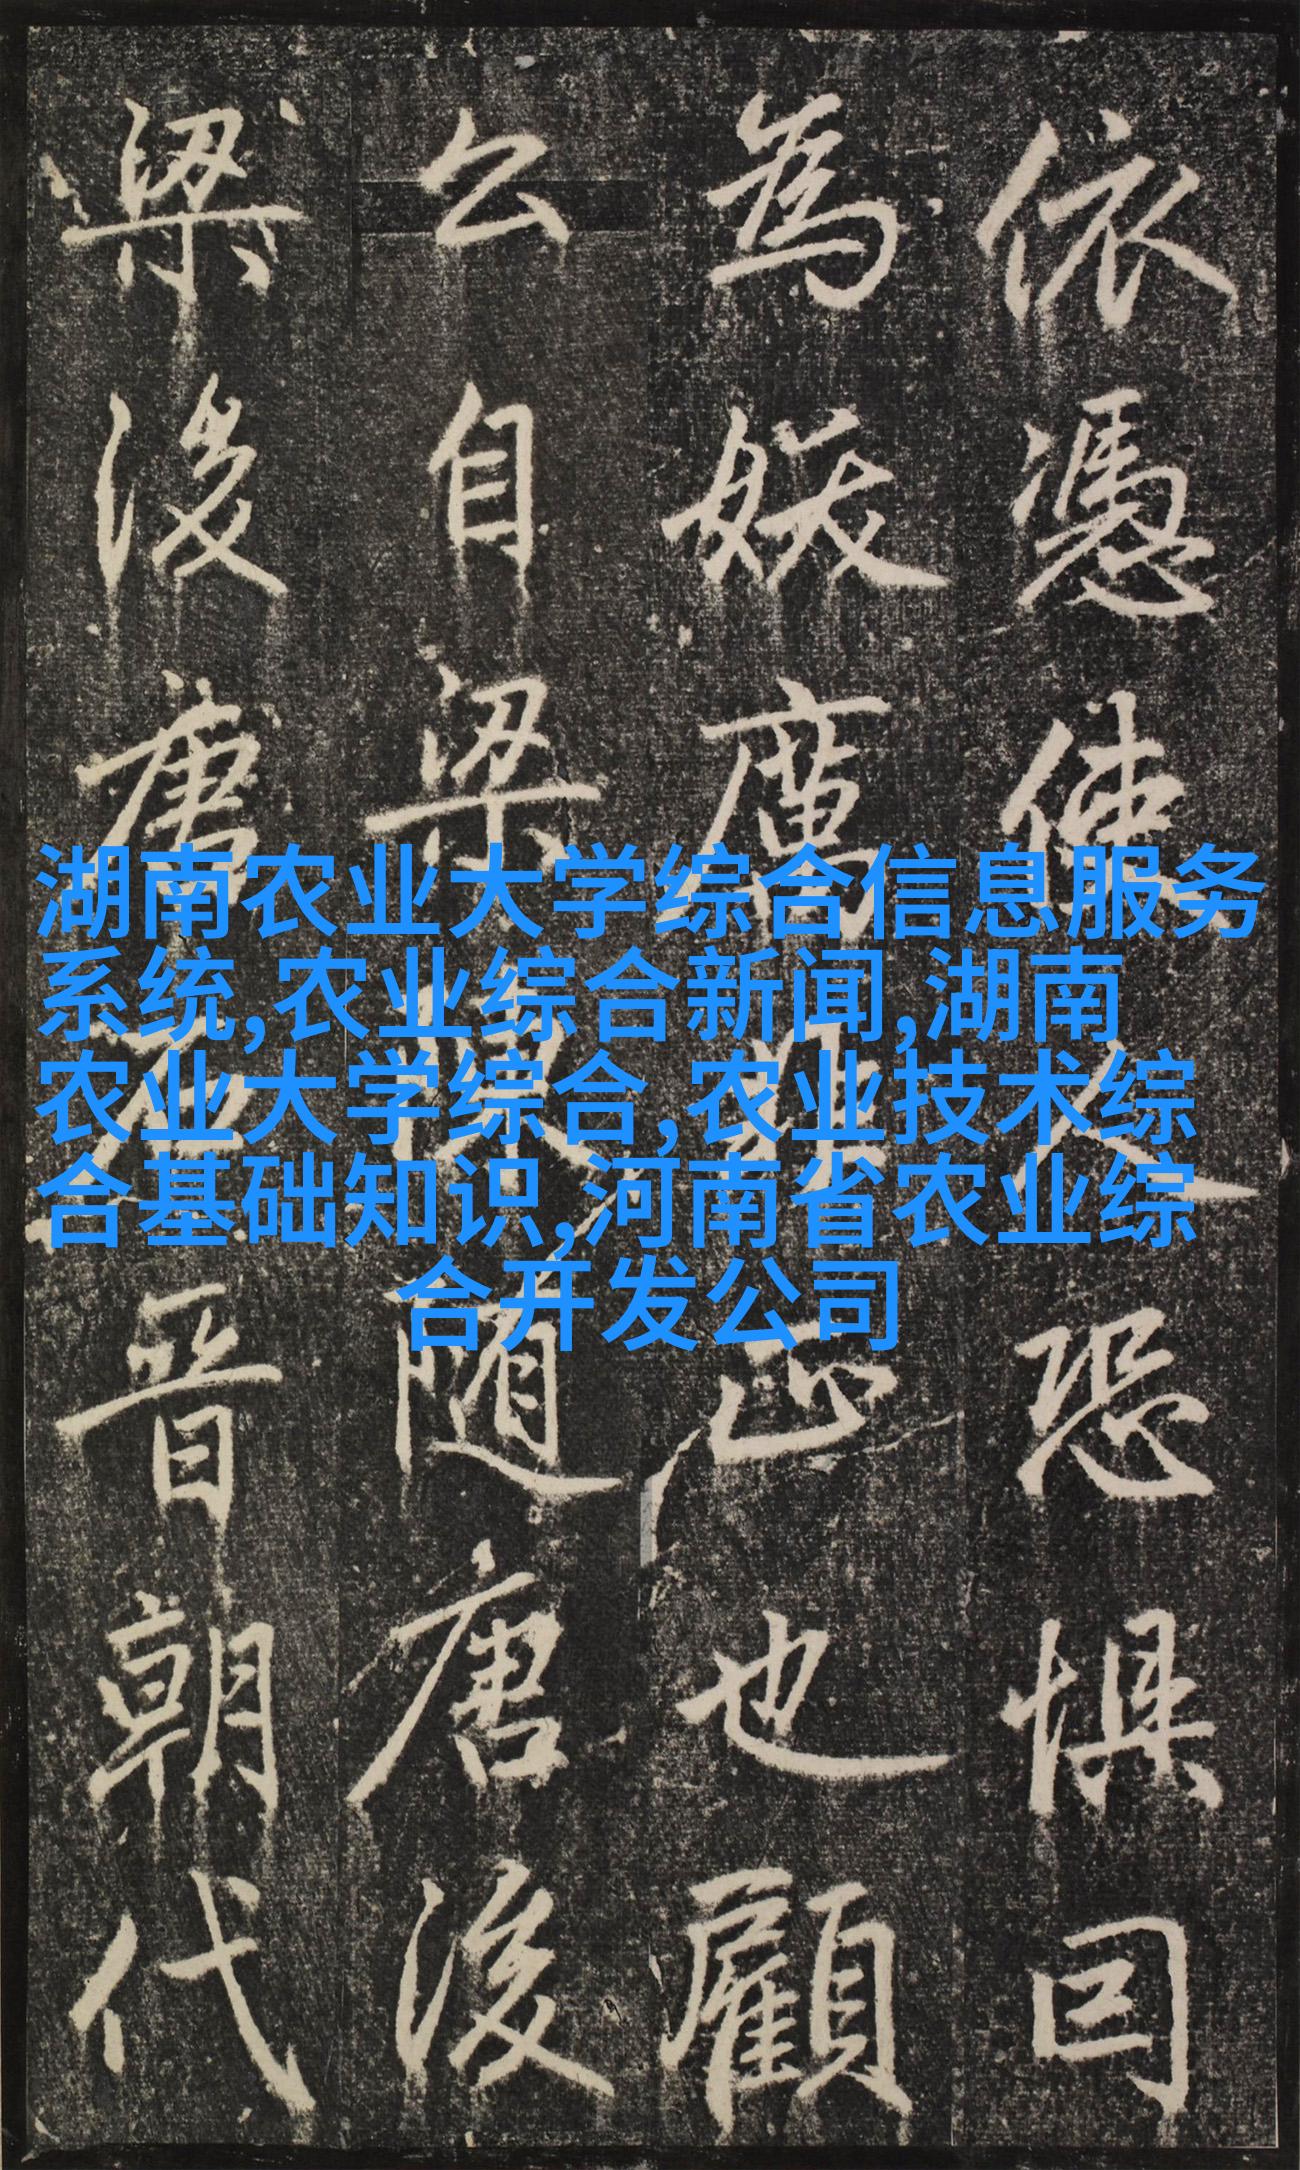 湖南农业大学综合信息服务
系统,农业综合新闻,湖南
农业大学综合,农业技术综
合基础知识,河南省农业综
合开发公司
依憑使人恐懼囙
為妖厲非正也顧
公自梁隨唐後
梁後唐石晉朝代